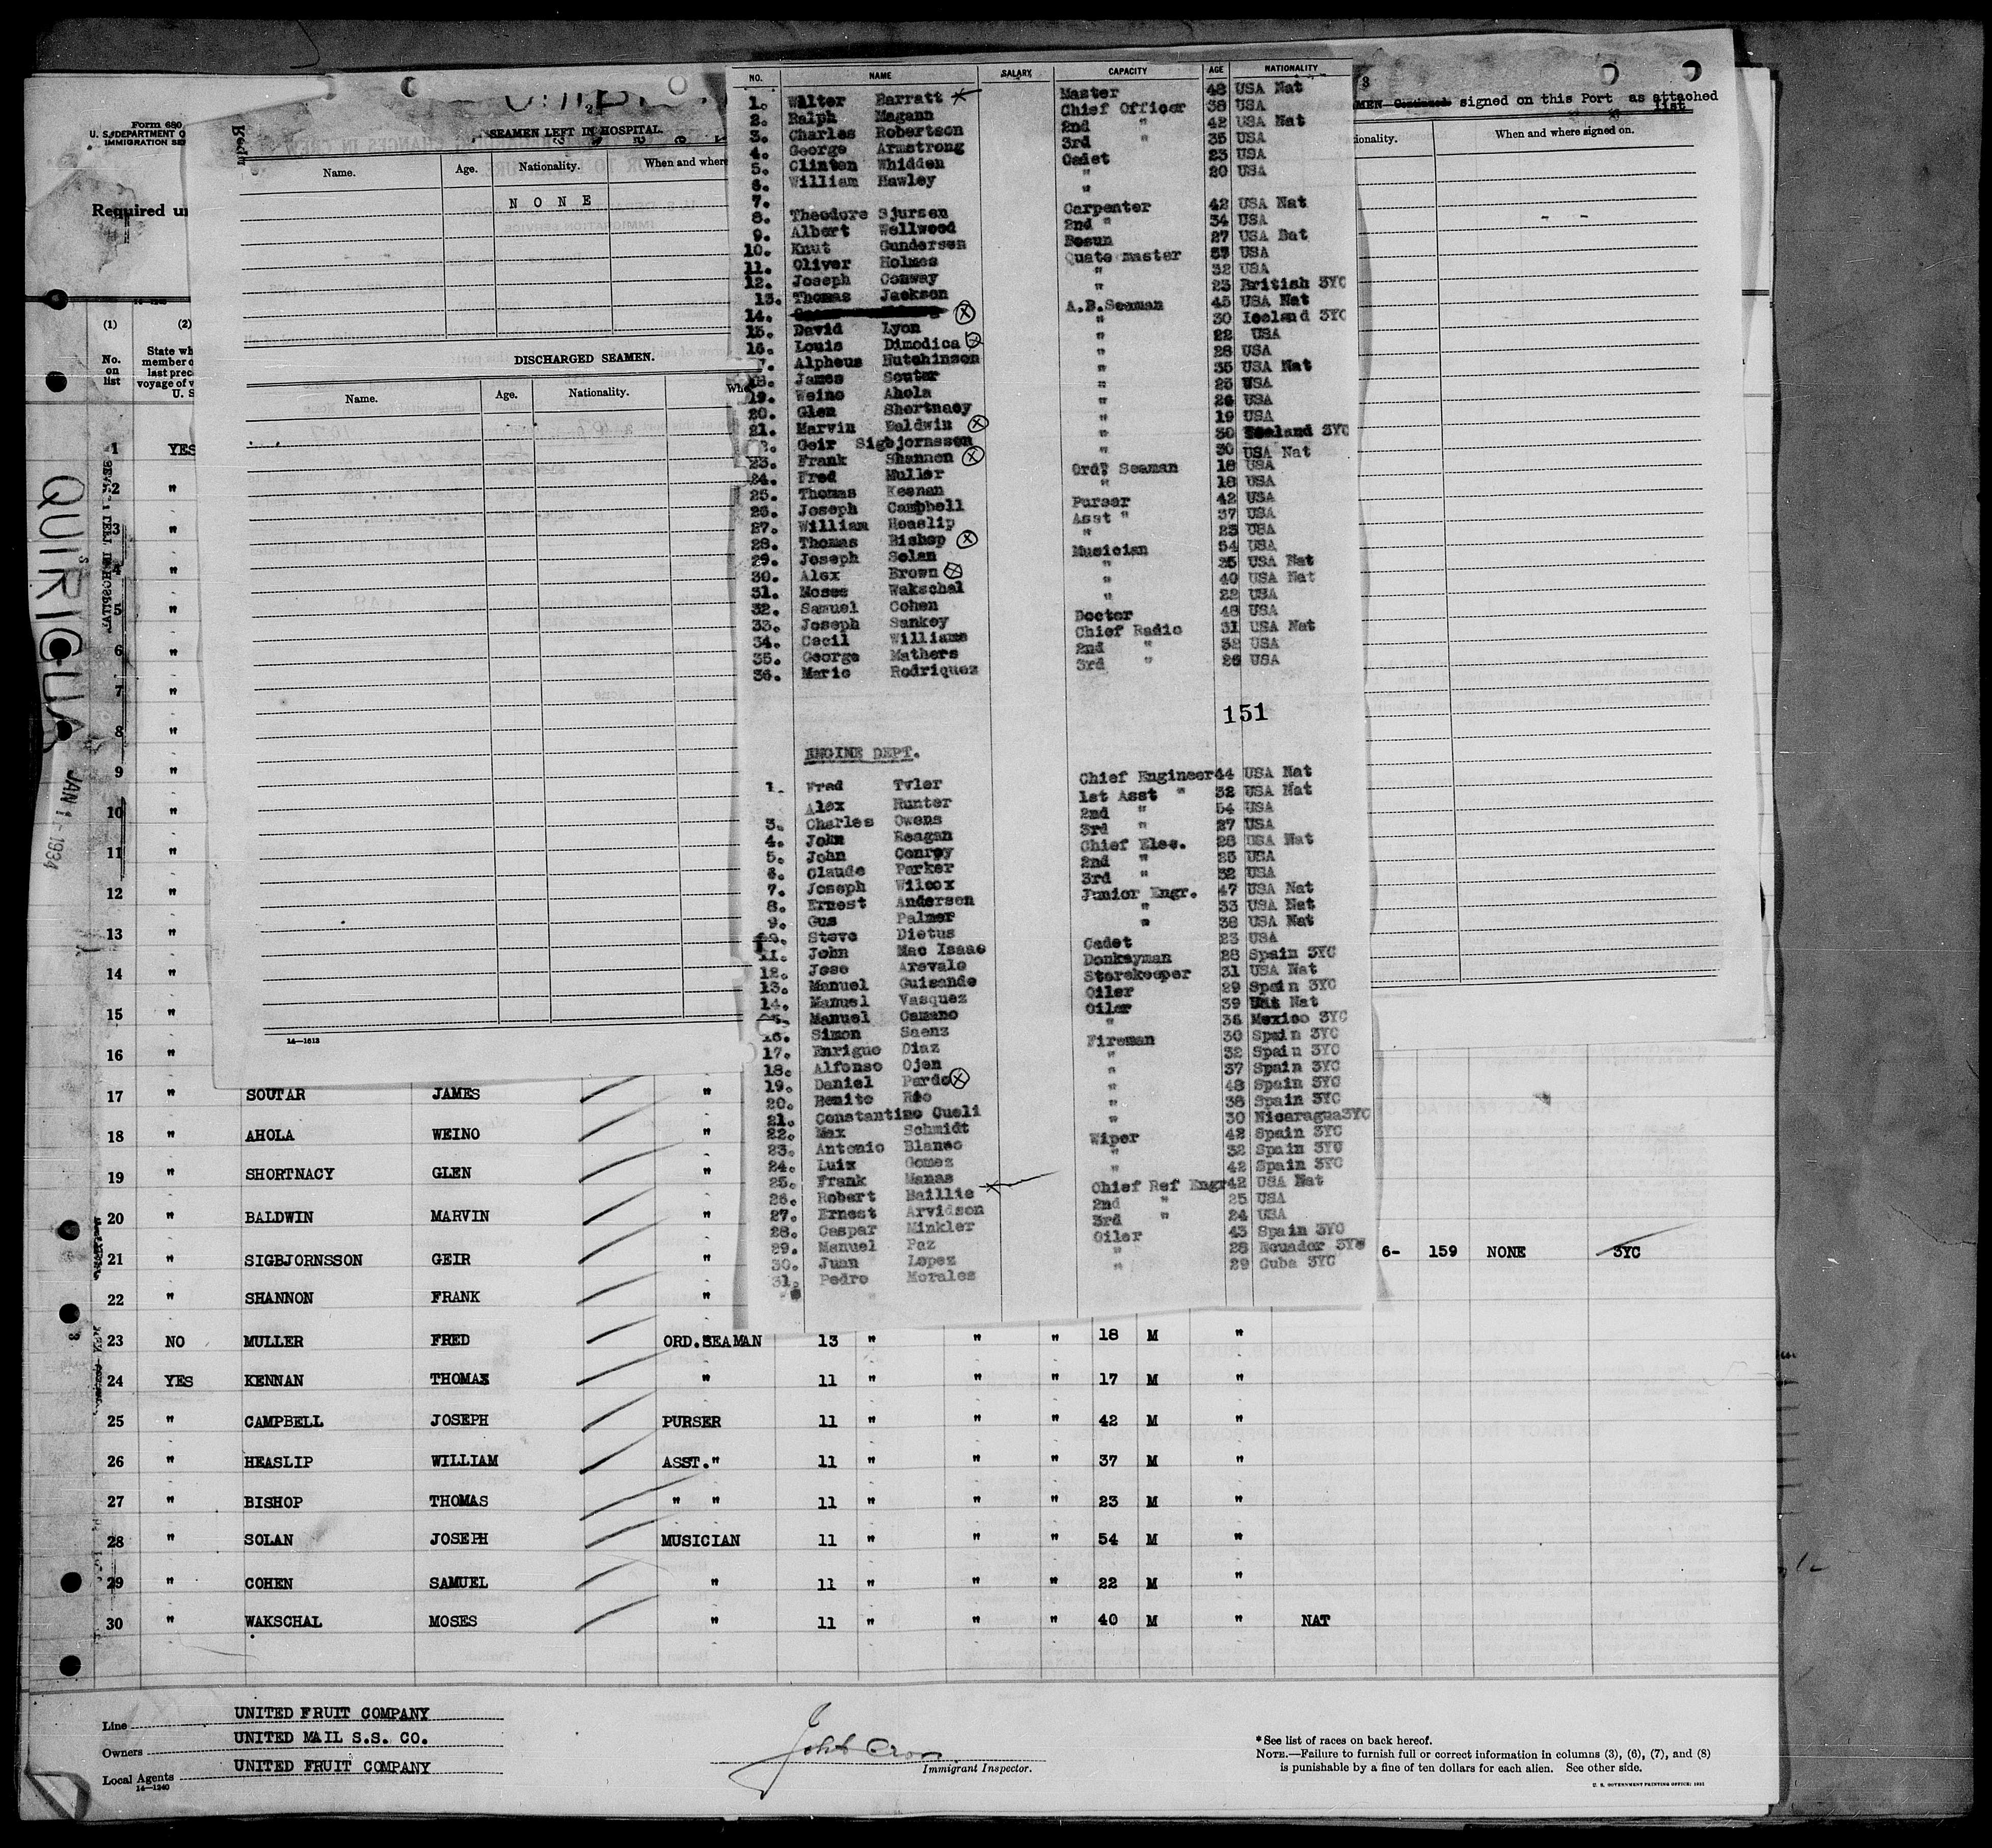 Form 680
U. S. DEPARTMENT O
IMMIGRATION SE
Required un
(1)
(2)
No.
on
list
State wh
member o
last prec
voyage of v
U. S
QUIRIGUA
JAN 1 - 1934
SEAMEN LEFT IN HOSPITAL.
Name.
Age.
Nationality.
When and where
NONE
DISCHARGED SEAMEN.
Name.
Age.
Nationality.
Whe
14—1613
MEN—Continued signed on this Port as attached
list
ionality.
When and where signed on.
NO. NAME SALARY CAPACITY AGE NATIONALITY
1. Walter Barratt Master 48 USA Nat
2. Ralph Magann Chief Officer 38 USA
3. Charles Robertson 2nd " 42 USA Nat
4. George Armstrong 3rd " 35 USA
5. Clinton Whidden Cadet 23 USA
6. William Hawley " 20 USA
7.
8. Theodore Sjursen Carpenter 42 USA Nat
9. Albert Wellwood 2nd " 34 USA
10. Knut Gundersen Bosun 27 USA Nat
11. Oliver Holmes Quate master USA
12. Joseph Conway " 32 USA
13. Thomas Jackson " 23 British 3YC
14. A.B.Seaman 45 USA Nat
15. David Lyon " 30 Iceland 3YC
16. Louis Dimodica " 22 USA
17. Alpheus Hutchinson " 28 USA
18. James Souter " 35 USA Nat
19. Weino Ahola " 23 USA
20. Glen Shortnacy " 26 USA
21. Marvin Baldwin " 19 USA
22. Geir Sigbjornsson " 30 Iceland 3YC
23. Frank Shannon " 30 USA Nat
24. Fred Muller Ord. Seaman 18 USA
25. Thomas Keenan " 18 USA
26. Joseph Campbell Purser 42 USA
27. William Heaslip Asst " 37 USA
28. Thomas Bishop " 23 USA
29. Joseph Solan Musician 54 USA
30. Alex Brown " 35 USA Nat
31. Moses Wakschal " 40 USA Nat
32. Samuel Cohen " 22 USA
33. Joseph Sankey Doctor 48 USA
34. Cecil Williams Chief Radio 31 USA Nat
35. George Mathers 2nd " 32 USA
36. Mario Rodriquez 3rd " 26 USA
151
ENGINE DEPT.
1. Fred Tyler Chief Engineer 44 USA Nat
Alex Hunter 1st Asst " 32 USA Nat
3. Charles Owens 2nd " 54 USA
4. John Reagan 3rd " 27 USA
5. John Conroy Chief Elec. 28 USA Nat
6. Claude Parker 2nd " 25 USA
7. Joseph Wilcox 3rd " 32 USA
8. Ernest Andersen Junior Engr. 47 USA Nat
9. Gus Palmer " 33 USA Nat
10. Steve Dietus " 38 USA Nat
11. John Mac Isaac Cadet 23 USA
12. Jose Arevalo Donkeyman 28 Spain 3YC
13. Manuel Guisande Storekeeper 31 USA Nat
14. Manuel Vasquez Oiler 29 Spain 3YC
15. Manuel Camano Oiler 39 Nat
16. Simon Saenz " 36 Mexico 3YC
17. Enrigue Diaz Fireman 30 Spain 3YC
18. Alfonso Ojen " 32 Spain 3YC
19. Daniel Pardo " 37 Spain 3YC
20. Benito Rio " 48 Spain 3YC
21. Constantino Cueli " 38 Spain 3YC
22. Max Schmidt " 30 Nicaragua3YC
23. Antonio Blanco Wiper 42 Spain 3YC
24. Luis Gomez " 32 Spain 3YC
25. Frank Manas " 42 Spain 3YC
26. Robert Baillie Chief Ref Engr 42 USA Nat
27. Ernest Arvidson 2nd " 25 USA
28. Caspar Minkler 3rd " 24 USA
29. Manuel Paz Oiler 43 Spain 3YC
30. Juan Lopez " 28 Ecuador 3YC
31. Pedro Morales " 29 Cuba 3YC
1 YES
2 "
3 "
4 "
5 "
6 "
7 "
8 "
9 "
10 "
11 "
12 "
13 "
14 "
15 "
16 "
17 " SOUTAR JAMES "
18 " AHOLA WEINO "
19 " SHORTNACY GLEN "
20 " BALDWIN MARVIN "
21 " SIGBJORNSSON GEIR " 6- 159 NONE 3YC
22 " SHANNON FRANK "
23 NO MULLER FRED ORD.SEAMAN 13 " " " 18 M "
24 YES KENNAN THOMAS " 11 " " " 17 M "
25 " CAMPBELL JOSEPH PURSER 11 " " " 42 M "
26 " HEASLIP WILLIAM ASST." 11 " " " 37 M "
27 " BISHOP THOMAS " " 11 " " " 23 M "
28 " SOLAN JOSEPH MUSICIAN 11 " " " 54 M "
29 " COHEN SAMUEL " 11 " " " 22 M "
30 " WAKSCHAL MOSES " 11 " " " 40 M " NAT
Line UNITED FRUIT COMPANY
Owners UNITED MAIL S.S. CO.
Local Agents UNITED FRUIT COMPANY
14—1240
Immigrant Inspector.
* See list of races on back hereof.
NOTE.—Failure to furnish full or correct information in columns (3), (6), (7), and (8)
is punishable by a fine of ten dollars for each alien. See other side.
U. S. GOVERNMENT PRINTING OFFICE: 1931